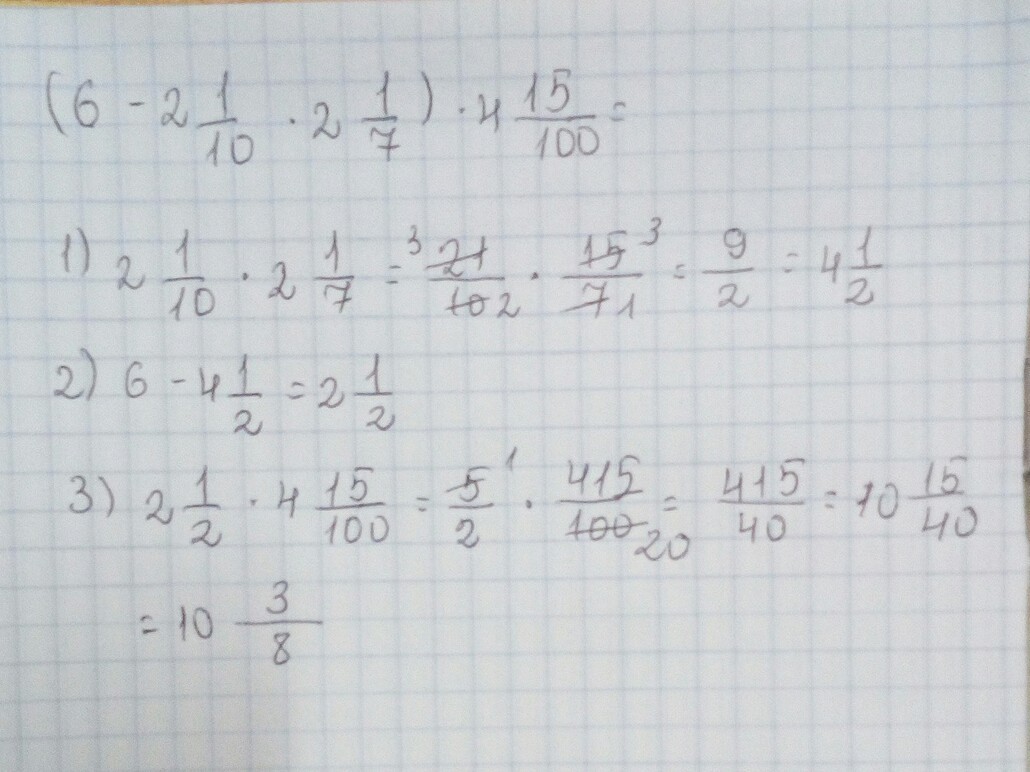 (6 - 2 1/10 · 2 1/7) · 4 15/100 =
1) 2 1/10 · 2 1/7 = 3 21/10 2 · 15 3/7 1 = 9/2 = 4 1/2
2) 6 - 4 1/2 = 2 1/2
3) 2 1/2 · 4 15/100 = 5 1/2 · 415/100 20 = 415/40 = 10 15/40
= 10 3/8